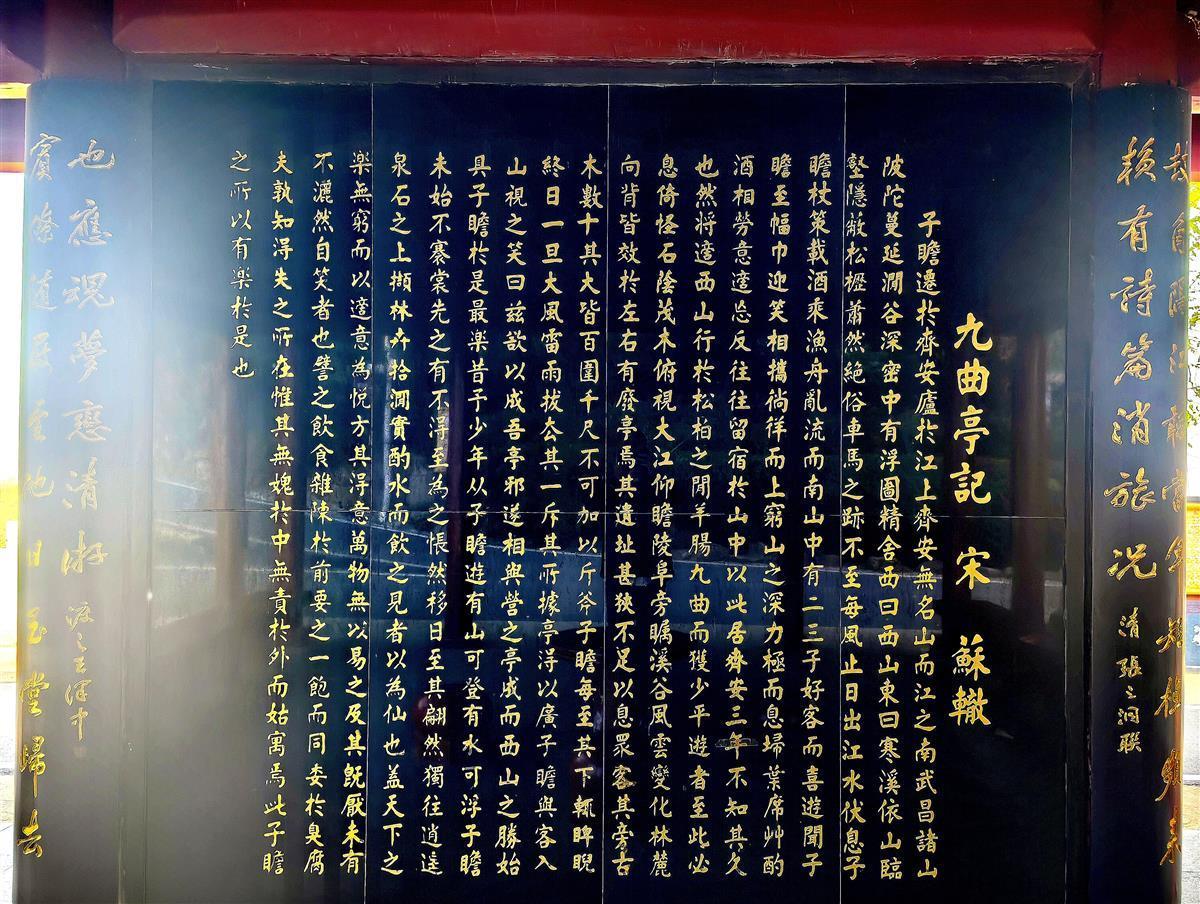 角隔江
賴有詩篇消旅况
清 張之洞聯
九曲亭記 宋 蘇轍
子瞻遷於齊安廬於江上齊安無名山而江之南武昌諸山
陂陀蔓延澗谷深密中有浮圖精舍西曰西山東曰寒溪依山臨
壑隱蔽松櫪蕭然絕俗車馬之跡不至每風止日出江水伏息子
瞻杖策載酒乘漁舟亂流而南山中有二三子好客而喜遊聞子
瞻至幅巾迎笑相攜徜徉而上窮山之深力極而息埽葉席艸酌
酒相勞意適忘反往往留宿於山中以此居齊安三年不知其久
也然將適西山行於松柏之間羊腸九曲而獲少平遊者至此必
息倚怪石蔭茂木俯視大江仰瞻陵阜旁矚溪谷風雲變化林麓
向背皆效於左右有廢亭焉其遺址甚狹不足以息眾客其旁古
木數十其大皆百圍千尺不可加以斤斧子瞻每至其下輒睥睨
終日一旦大風雷雨拔去其一斥其所據亭得以廣子瞻與客入
山視之笑曰茲欲以成吾亭邪遂相與營之亭成而西山之勝始
具子瞻於是最樂昔予少年从子瞻遊有山可登有水可浮子瞻
未始不褰裳先之有不得至為之悵然移日至其翩然獨往逍遙
泉石之上擷林卉拾澗實酌水而飲之見者以為仙也蓋天下之
樂無窮而以適意為悅方其得意萬物無以易之及其既厭未有
不灑然自笑者也譬之飲食雜陳於前要之一飽而同委於臭腐
夫孰知得失之所在惟其無媿於中無責於外而姑寓焉此子瞻
之所以有樂於是也
賓僚至他日玉堂歸去
也應魂夢戀清游